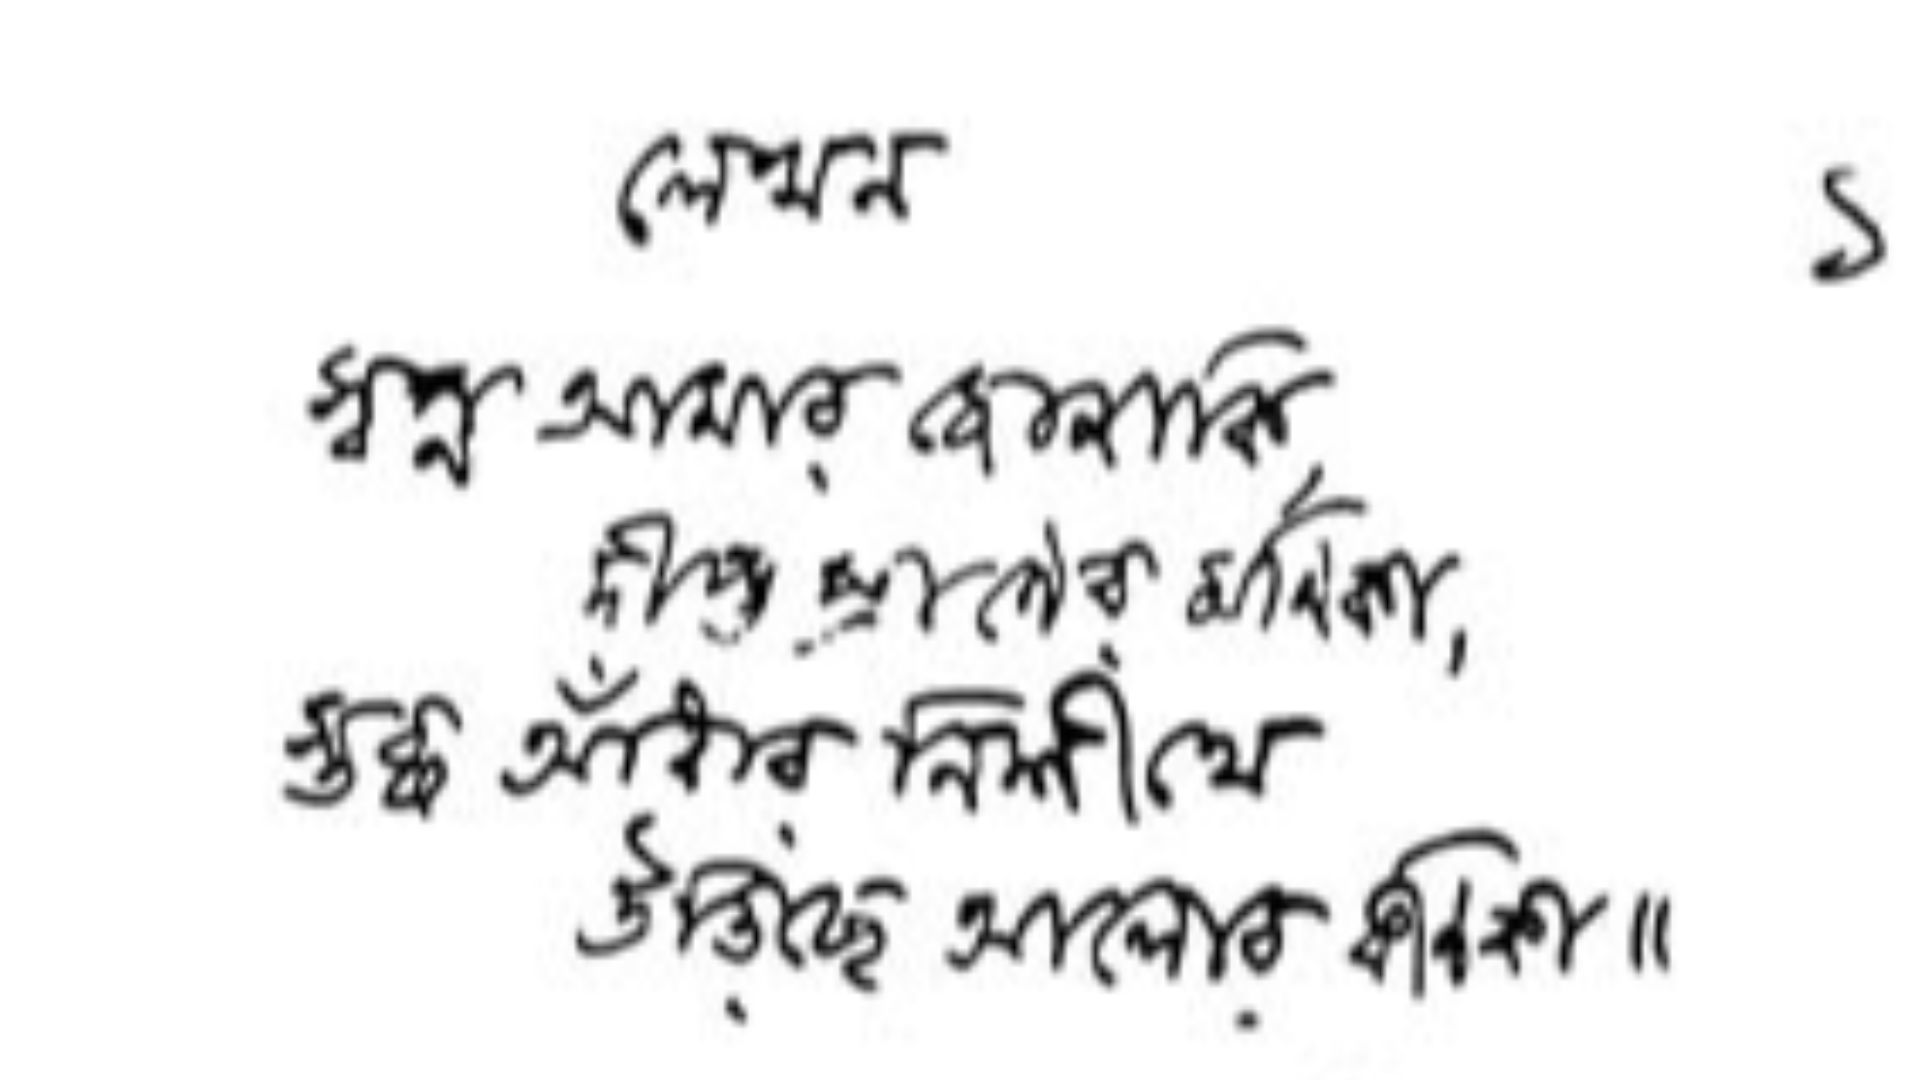 লেখন
১
স্বপ্ন আমার জোনাকি,
দীপ্ত প্রাণের মণিকা,
স্তব্ধ আঁধার নিশীথে
উড়িছে আলোর কণিকা॥